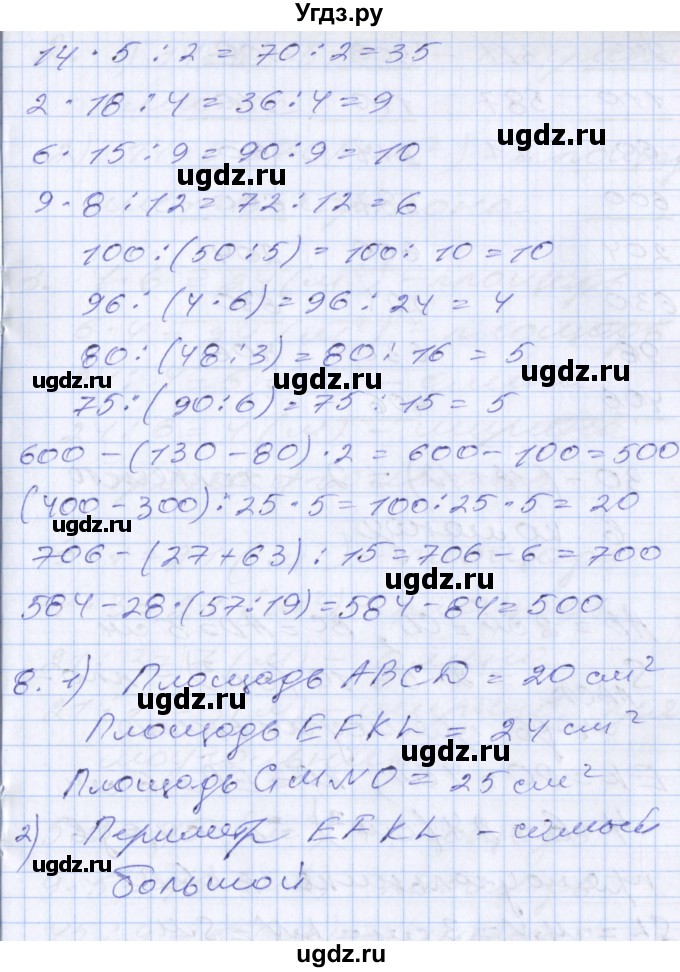 Угдз.ру
14 · 5 : 2 = 70 : 2 = 35
2 · 18 : 4 = 36 : 4 = 9
ugdz.ru
6 · 15 : 9 = 90 : 9 = 10
ugdz.ru
9 · 8 : 12 = 72 : 12 = 6
100 : (50 : 5) = 100 : 10 = 10
96 : (4 · 6) = 96 : 24 = 4
80 : (48 : 3) = 80 : 16 = 5
ugdz.ru ugdz.ru ugdz.ru
75 : (90 : 6) = 75 : 15 = 5
600 - (130 - 80) · 2 = 600 - 100 = 500
(400 - 300) : 25 · 5 = 100 : 25 · 5 = 20
ugdz.ru
706 - (27 + 63) : 15 = 706 - 6 = 700
ugdz.ru
584 - 28 · (57 : 19) = 584 - 84 = 500
8. 1) Площадь ABCD = 20 см²
ugdz.ru
Площадь EFKL = 24 см²
ugdz.ru
Площадь GMNO = 25 см²
2) Периметр EFKL - самый
ugdz.ru
большой
ugdz.ru
ugdz.ru